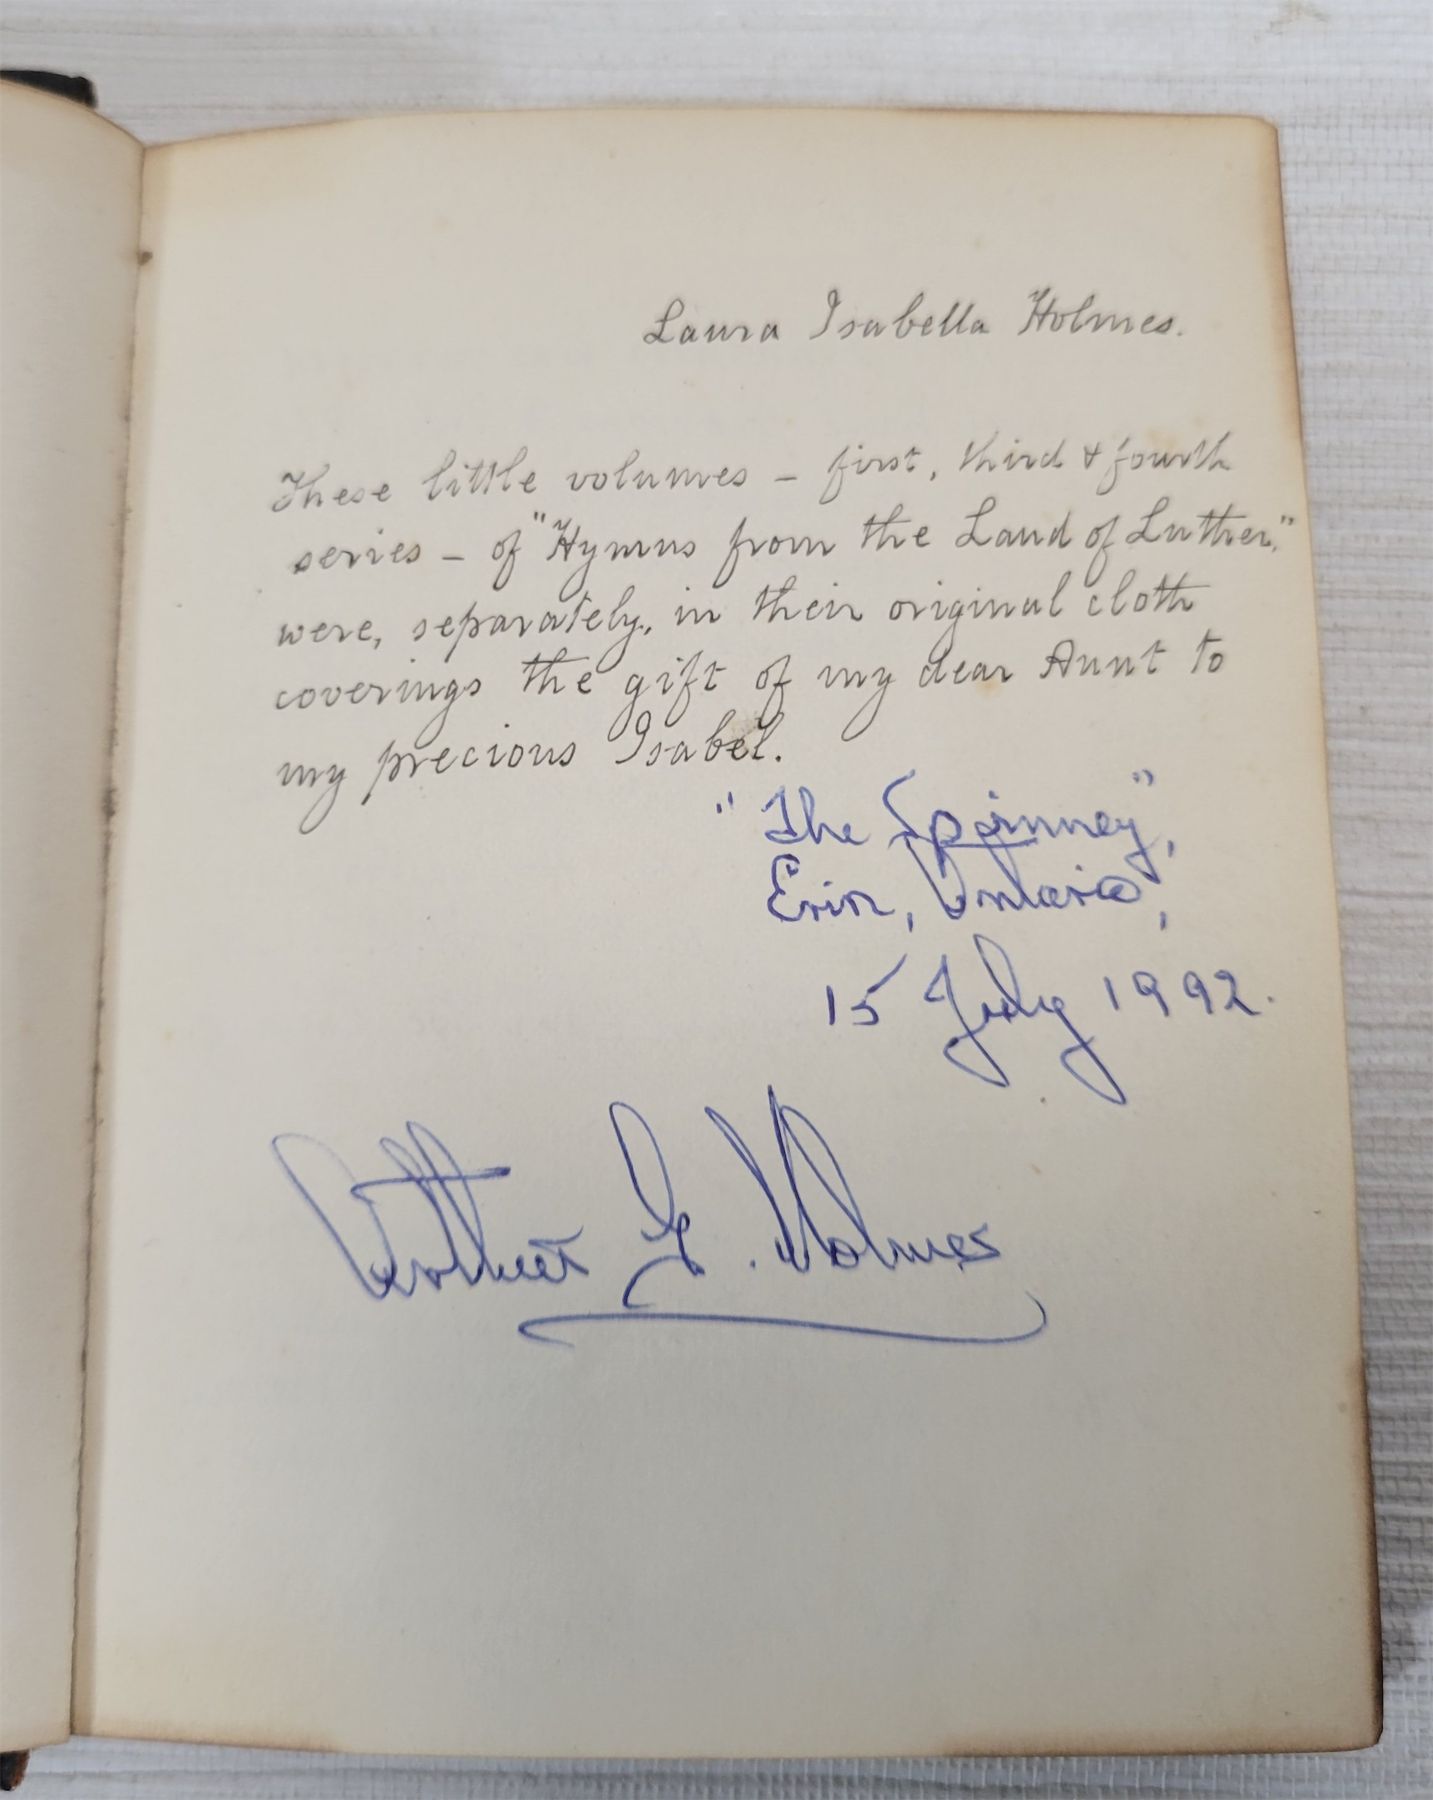 Laura Isabella Holmes.
These little volumes – first, third & fourth
series – of "Hymns from the Land of Luther,"
were, separately, in their original cloth
coverings the gift of my dear Aunt to
my precious Isabel.
"The Spinney",
Erin, Ontario,
15 July 1992.
Holmes